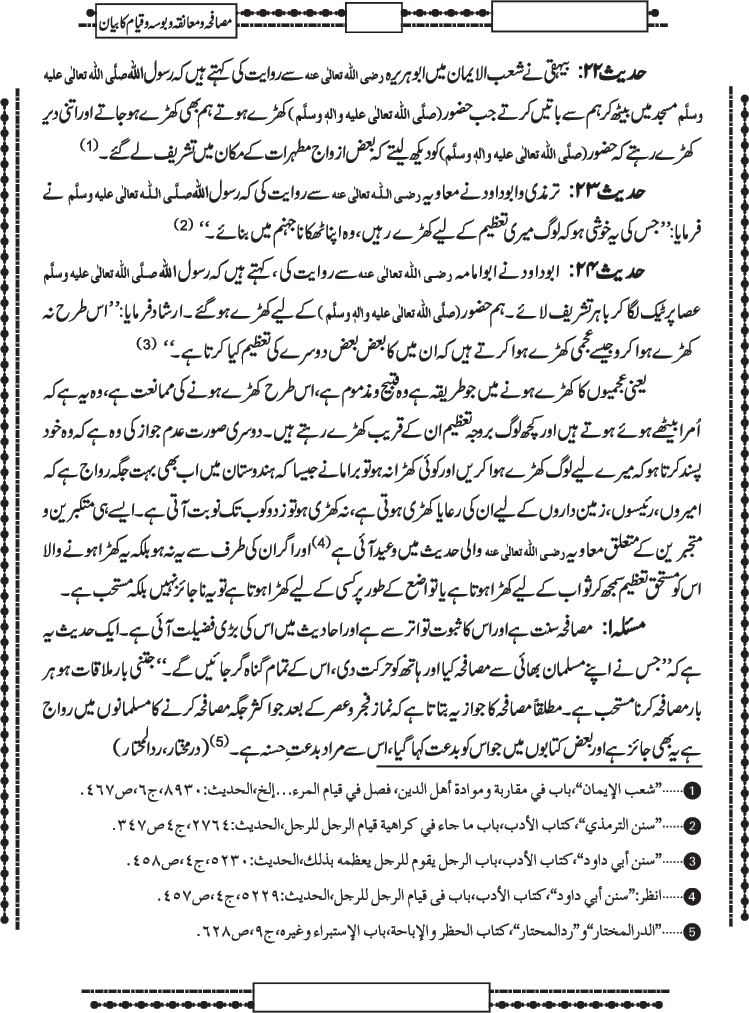 مصافحہ و معانقہ و بوسہ و قیام کا بیان
حدیث ۲۲: بیہقی نے شعب الایمان میں ابوہریرہ رضی اللہ تعالٰی عنہ سے روایت کی کہتے ہیں کہ رسول اللہ صلَّی اللہ تعالٰی علیہ
وسلَّم مسجد میں بیٹھ کر ہم سے باتیں کرتے جب حضور (صلَّی اللہ تعالٰی علیہ واٰلہٖ وسلَّم) کھڑے ہوتے ہم بھی کھڑے ہوجاتے اور اتنی دیر
کھڑے رہتے کہ حضور (صلَّی اللہ تعالٰی علیہ واٰلہٖ وسلَّم) کو دیکھ لیتے کہ بعض ازواج مطہرات کے مکان میں تشریف لے گئے۔ (1)
حدیث ۲۳: ترمذی و ابوداود نے معاویہ رضی اللہ تعالٰی عنہ سے روایت کی کہ رسول اللہ صلَّی اللہ تعالٰی علیہ وسلَّم نے
فرمایا: ’’جس کی یہ خوشی ہو کہ لوگ میری تعظیم کے لیے کھڑے رہیں، وہ اپنا ٹھکانا جہنم میں بنائے۔‘‘ (2)
حدیث ۲۴: ابوداود نے ابوامامہ رضی اللہ تعالٰی عنہ سے روایت کی، کہتے ہیں کہ رسول اللہ صلَّی اللہ تعالٰی علیہ وسلَّم
عصا پر ٹیک لگا کر باہر تشریف لائے۔ ہم حضور (صلَّی اللہ تعالٰی علیہ واٰلہٖ وسلَّم) کے لیے کھڑے ہوگئے۔ ارشاد فرمایا: ’’اس طرح نہ
کھڑے ہوا کرو جیسے عجمی کھڑے ہوا کرتے ہیں کہ ان میں کا بعض بعض دوسرے کی تعظیم کیا کرتا ہے۔‘‘ (3)
یعنی عجمیوں کا کھڑے ہونے میں جو طریقہ ہے وہ قبیح و مذموم ہے، اس طرح کھڑے ہونے کی ممانعت ہے، وہ یہ ہے کہ
اُمرا بیٹھے ہوئے ہوتے ہیں اور کچھ لوگ بروجہ تعظیم ان کے قریب کھڑے رہتے ہیں۔ دوسری صورت عدم جواز کی وہ ہے کہ وہ خود
پسند کرتا ہو کہ میرے لیے لوگ کھڑے ہوا کریں اور کوئی کھڑا نہ ہو تو برا مانے جیسا کہ ہندوستان میں اب بھی بہت جگہ رواج ہے کہ
امیروں، رئیسوں، زمین داروں کے لیے ان کی رعایا کھڑی ہوتی ہے، نہ کھڑی ہو تو زدوکوب تک نوبت آتی ہے۔ ایسے ہی متکبرین و
متجبرین کے متعلق معاویہ رضی اللہ تعالٰی عنہ والی حدیث میں وعید آئی ہے (4) اور اگر ان کی طرف سے یہ نہ ہو بلکہ یہ کھڑا ہونے والا
اس کو مستحقِ تعظیم سمجھ کر ثواب کے لیے کھڑا ہوتا ہے یا تواضع کے طور پر کسی کے لیے کھڑا ہوتا ہے تو یہ ناجائز نہیں بلکہ مستحب ہے۔
مسئلہ ۱: مصافحہ سنت ہے اور اس کا ثبوت تواتر سے ہے اور احادیث میں اس کی بڑی فضیلت آئی ہے۔ ایک حدیث یہ
ہے کہ ’’جس نے اپنے مسلمان بھائی سے مصافحہ کیا اور ہاتھ کو حرکت دی، اس کے تمام گناہ گر جائیں گے۔‘‘ جتنی بار ملاقات ہو ہر
بار مصافحہ کرنا مستحب ہے۔ مطلقاً مصافحہ کا جواز یہ بتاتا ہے کہ نماز فجر و عصر کے بعد جو اکثر جگہ مصافحہ کرنے کا مسلمانوں میں رواج
ہے یہ بھی جائز ہے اور بعض کتابوں میں جو اس کو بدعت کہا گیا، اس سے مراد بدعتِ حسنہ ہے۔ (5) (درمختار، ردالمحتار)
1 ......’’شعب الإيمان‘‘، باب في مقاربة وموادة أهل الدين، فصل في قيام المرء...إلخ، الحديث: ٨٩٣٠، ج٦، ص٤٦٧.
2 ......’’سنن الترمذي‘‘، كتاب الأدب، باب ما جاء في كراهية قيام الرجل للرجل، الحديث: ٢٧٦٤، ج٤ ص٣٤٧.
3 ......’’سنن أبي داود‘‘، كتاب الأدب، باب الرجل يقوم للرجل يعظمه بذلك، الحديث: ٥٢٣٠، ج٤، ص٤٥٨.
4 ......انظر: ’’سنن أبي داود‘‘، كتاب الأدب، باب فى قيام الرجل للرجل، الحديث: ٥٢٢٩، ج٤، ص٤٥٧.
5 ......’’الدرالمختار‘‘ و’’ردالمحتار‘‘، كتاب الحظر والإباحة، باب الإستبراء وغيره، ج٩، ص٦٢٨.